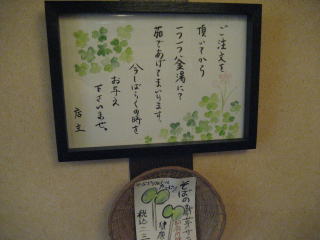 ご注文を
頂いてから
一つ一つ釜湯にて
茹であげてまいります。
今しばらくの時を
お与え
下さいませ。
店主
そばの新芽
健康
税込